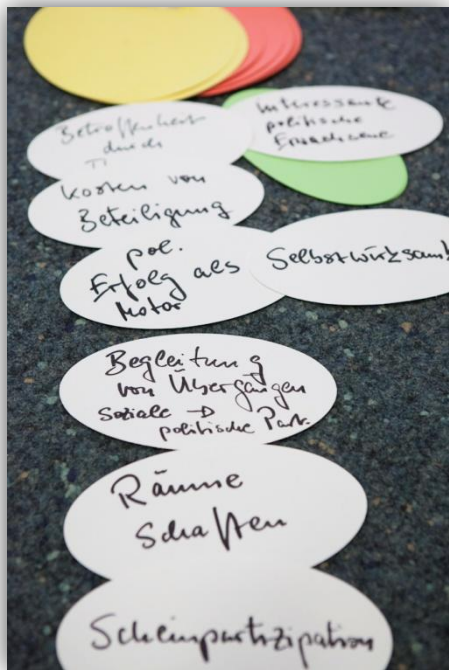 Betroffenheit
durch
Interessante
politische
Erwachsene
Kosten von
Beteiligung
pol.
Erfolg als
Motor
Selbstwirksamk
Begleitung
von Übergängen
Soziale → politische Part.
Räume
schaffen
Scheinpartizipation